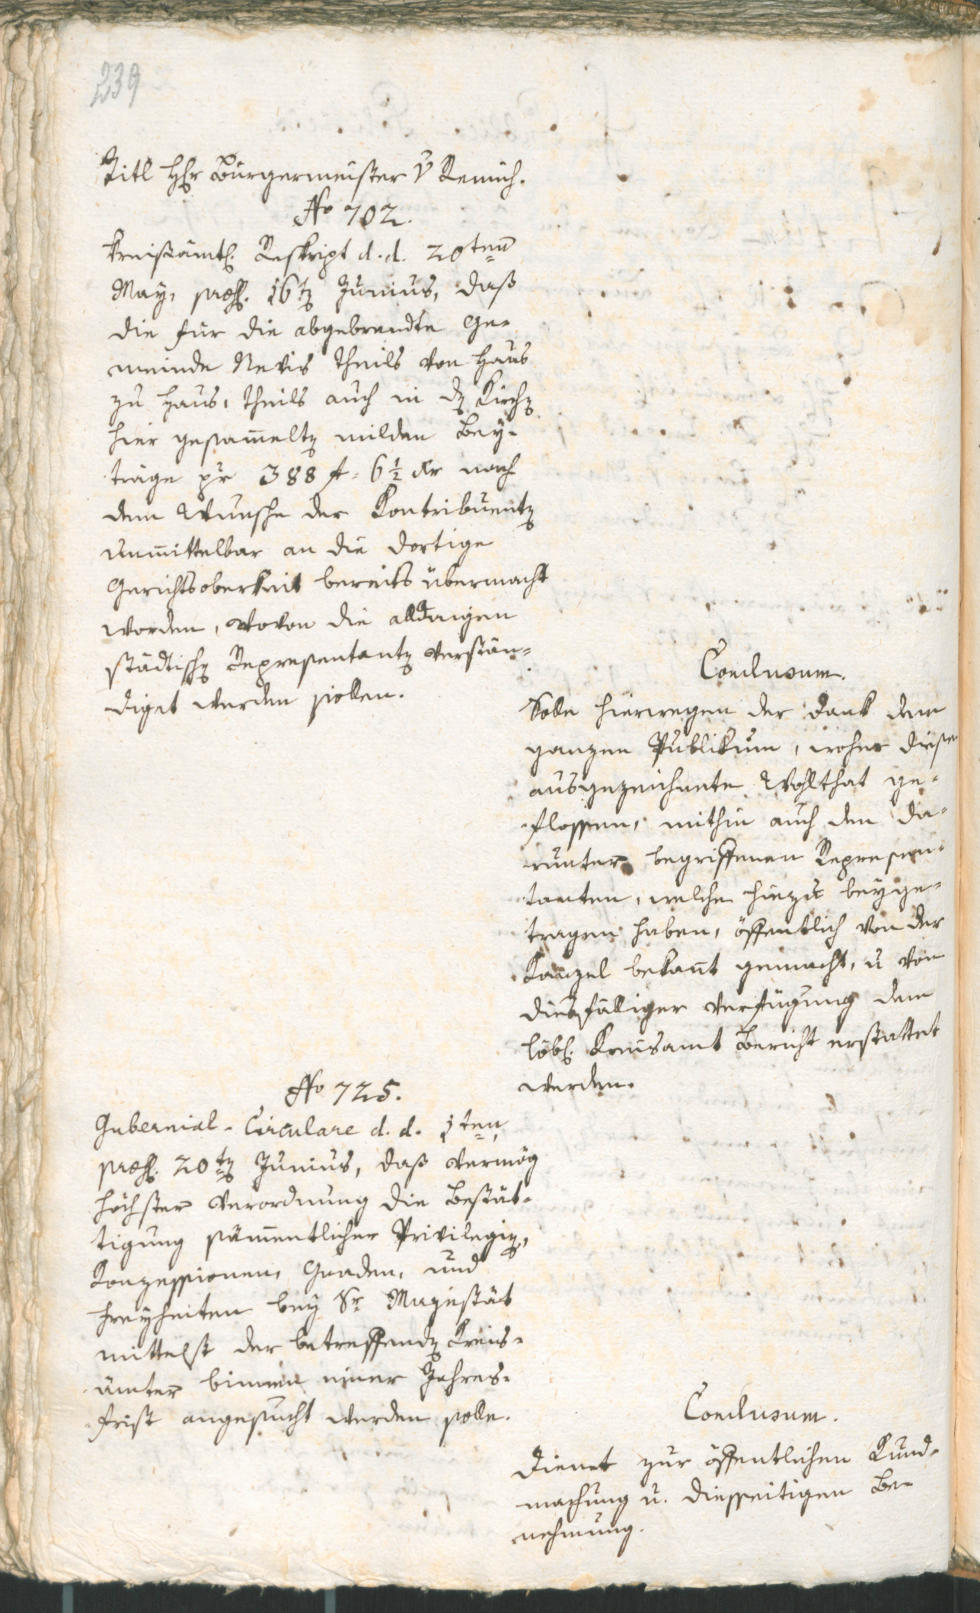 239
Titl Hr Bürgermeister v Remich.
No 702.
Kreisämtl. Reskript d. d. 20ten
May, præs. 16tz Junius, daß
die für die abgebrandte Ge-
meinde Nevis theils von Haus
zu Haus, theils auch in dz Kirchz
hier gesam̄eltz milden Bey-
träge pr 388 f. 6½ Xr nach
dem Wunsche der Kontribuentz
unmittelbar an die dortige
Gerichtsoberkeit bereits übermacht
worden, wovon die alldaigen
städtischz Representantz verstän-
diget werden sollen.
Conclusum.
Solle hierwegen der Dank dem
ganzen Publikum, woher diese
ausgezeichnete Wohlthat ge-
flossen, mithin auch den da-
runter begriffenen Represen-
tanten, welche hiezu beyge-
tragen haben, öffentlich von der
Kanzel bekan̄t gemacht, u von
diesfälliger Verfügung dem
löbl. Kreisamt Bericht erstattet
werden.
No 725.
Gubernial-Circulare d. d. 1ten,
præs. 20tz Junius, daß vermög
höchster Verordnung die Bestät-
tigung säm̄entlicher Privilegiz,
Konzessionen, Gnaden, und
Freyheiten bey Sr Majestät
mittelst der betreffendz Kreis-
ämter binnen einer Jahres-
frist angesucht werden solle.
Conclusum.
Dienet zur öffentlichen Kund-
machung u. diesseitigen Be-
nehmung.